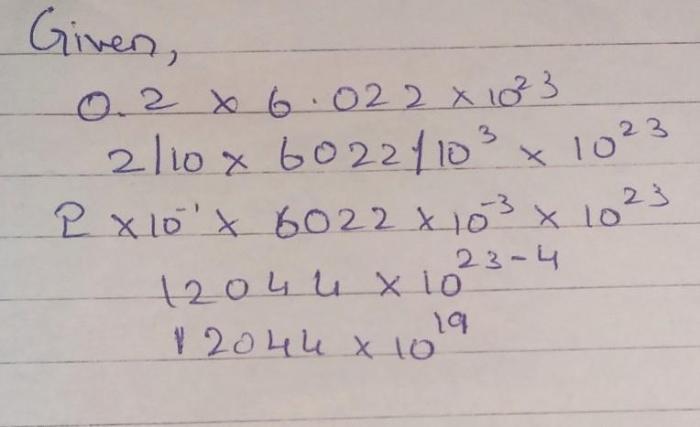 Given,
0.2 × 6.022 × 10²³
2/10 × 6022/10³ × 10²³
2 × 10⁻¹ × 6022 × 10⁻³ × 10²³
12044 × 10²³⁻⁴
12044 × 10¹⁹